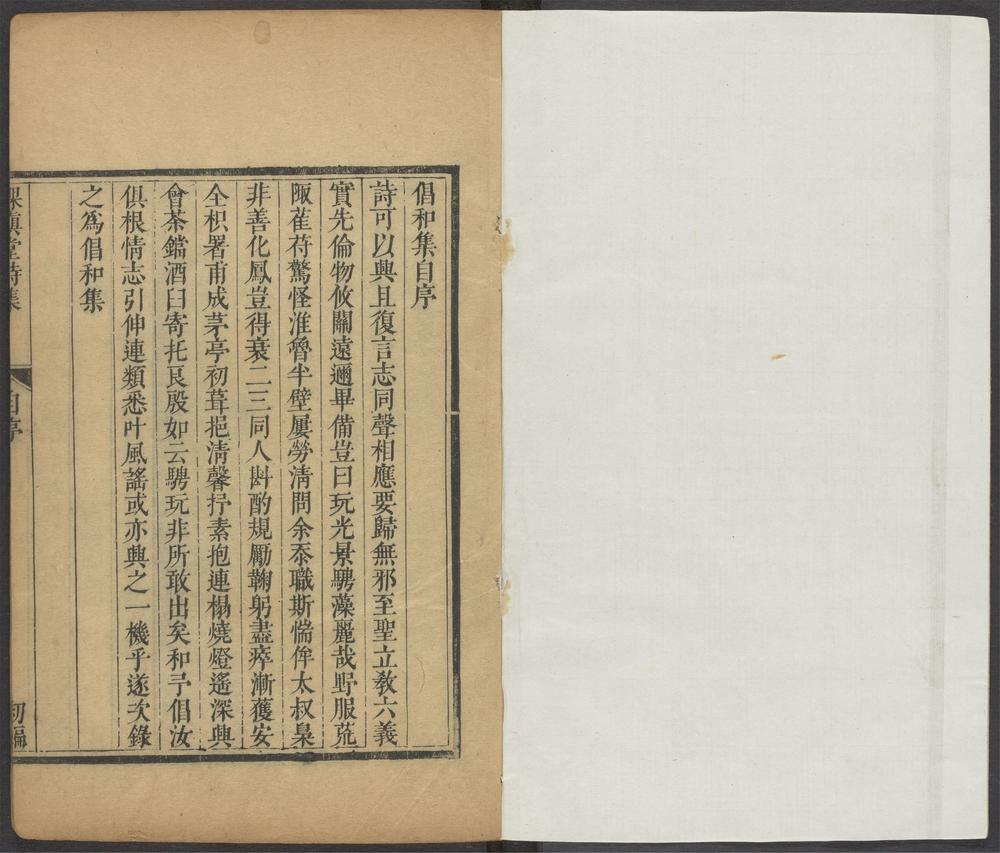 倡和集自序
詩可以興且復言志同聲相應要歸無邪至聖立教六義
實先倫物攸關遠邇畢備豈曰玩光景騁藻麗哉野服荒
陬萑苻驚怪淮魯半壁屢勞清問余忝職斯惴侔太叔臬
非善化鳳豈得衰二三同人斟酌規勵鞠躬盡瘁漸獲安
全枳署甫成茅亭初葺挹清馨抒素抱連榻燒燈遙深興
會茶鐺酒臼寄托艮殷如云騁玩非所敢出矣和予倡汝
俱根情志引伸連類悉叶風謠或亦興之一機乎遂次錄
之為倡和集
慎堂詩集
自序
初編